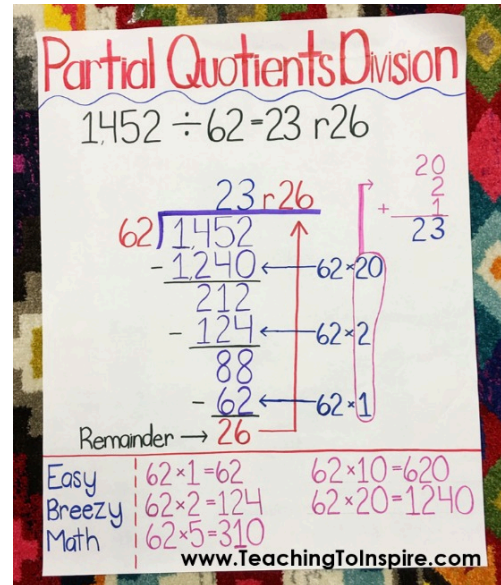 Partial Quotients Division
1,452 ÷ 62 = 23 r26
20
2
+ 1
23
23 r26
62)1,452
- 1,240 ← 62×20
212
- 124 ← 62×2
88
- 62 ← 62×1
Remainder → 26
Easy
Breezy
Math
62×1=62
62×2=124
62×5=310
62×10=620
62×20=1240
www.TeachingToInspire.com